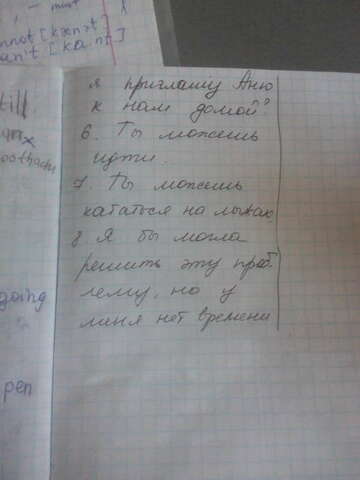 must
nnot [kænɔt]
an't [ka:nt]
till
oothache
going
pen
я приглашу Аню
к нам домой?
6. Ты можешь
идти.
7. Ты можешь
кататься на лыжах
8 Я бы могла
решить эту проб
лему, но у
меня нет времени